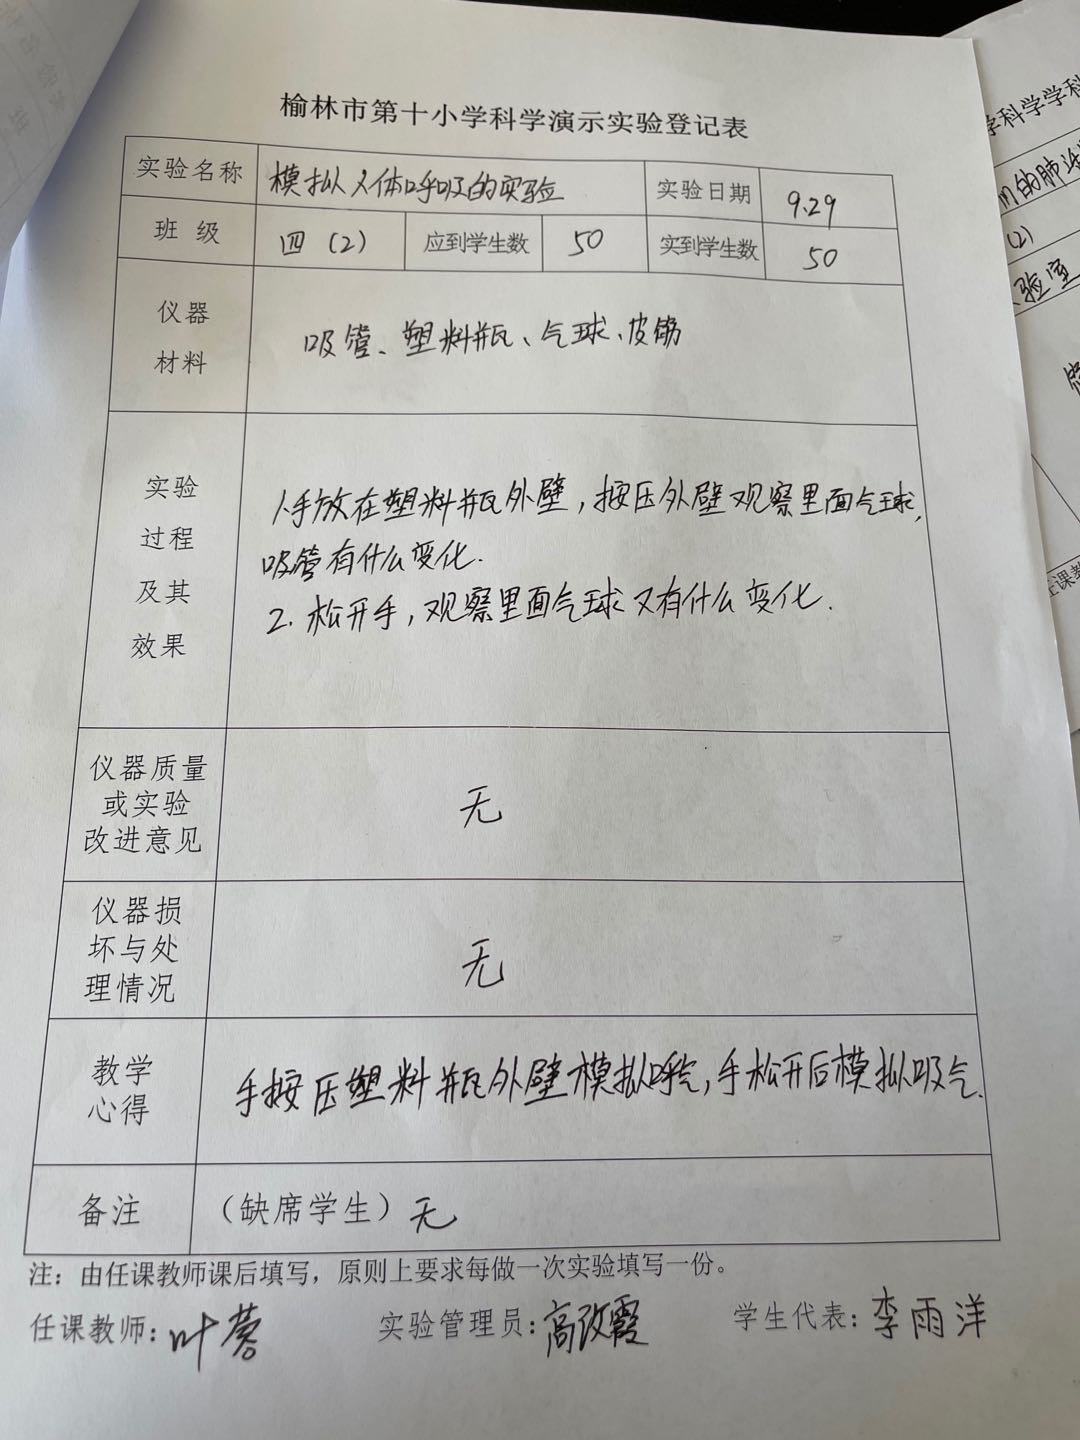 榆林市第十小学科学演示实验登记表
实验名称 模拟人体呼吸的实验 实验日期 9.29
班 级 四（2） 应到学生数 50 实到学生数 50
仪器
材料
吸管、塑料瓶、气球、皮筋
实验
过程
及其
效果
1.手放在塑料瓶外壁，按压外壁观察里面气球,
吸管有什么变化.
2. 松开手，观察里面气球又有什么变化.
仪器质量
或实验
改进意见
无
仪器损
坏与处
理情况
无
教学
心得
手按压塑料瓶外壁模拟呼气，手松开后模拟吸气.
备注 （缺席学生）无
注：由任课教师课后填写，原则上要求每做一次实验填写一份。
任课教师: 叶蓉 实验管理员: 高改霞 学生代表: 李雨洋
学科学学科
的肺活
(2)
验室
任课教